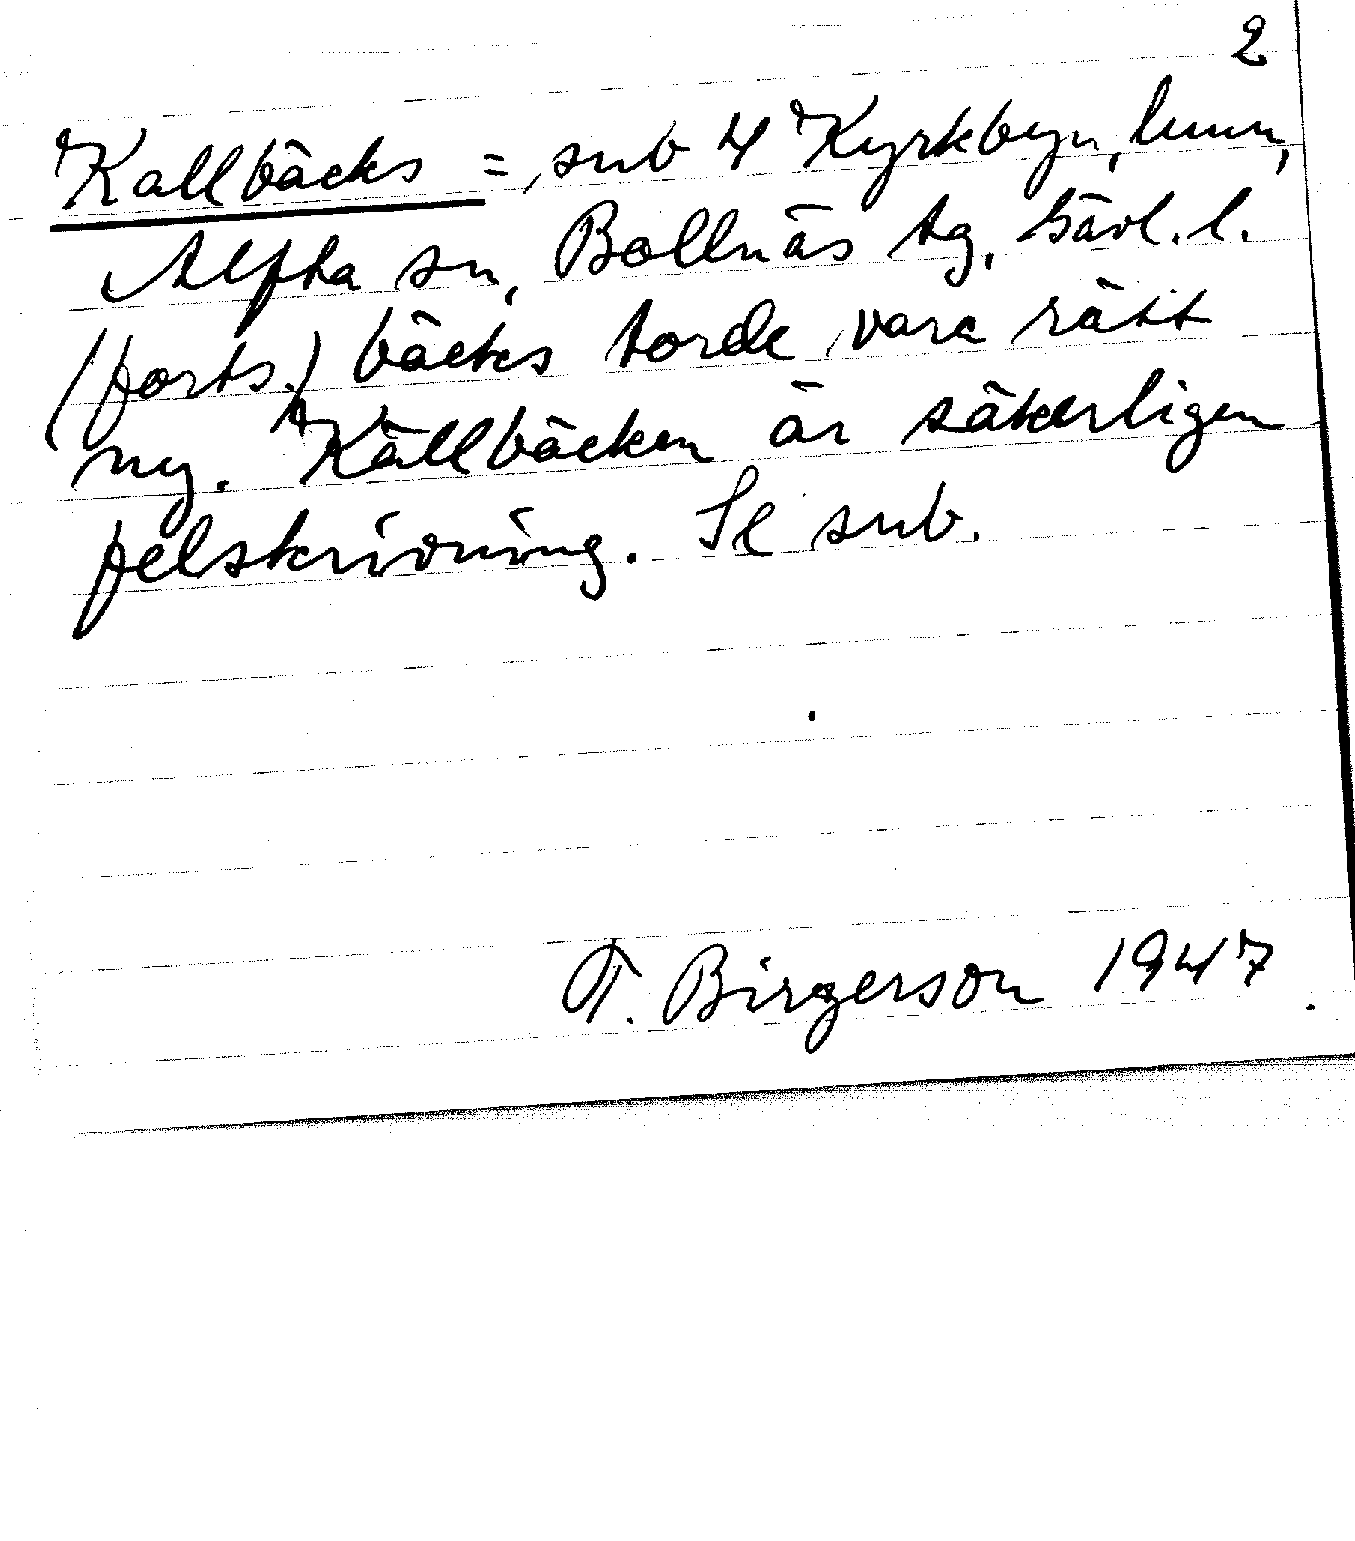 2
Kallbäcks =, sub 4 Kyrkbyn, hmn,
Alfta sn, Bollnäs tg, Gävl. l.
(forts.) bäcks torde vara rätt
ny. Källbäcken är säkerligen
felskrivning. Se sub.
T. Birgerson 1947